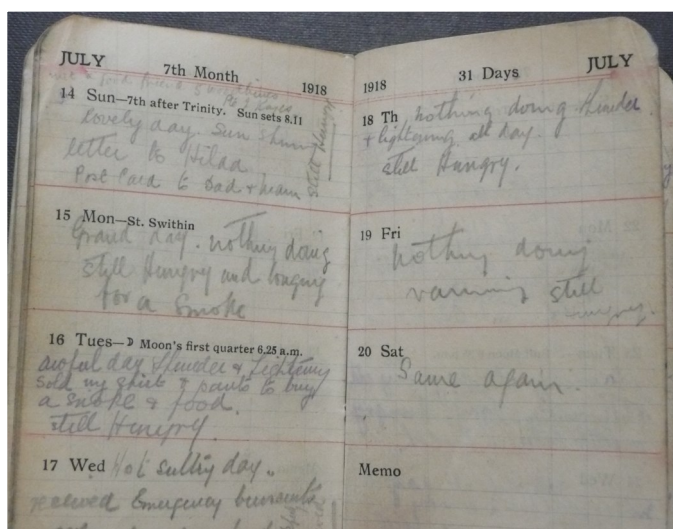 JULY 7th Month 1918
met a good friend
14 Sun—7th after Trinity. Sun sets 8.11
lovely day. Sun shining
letter to Hilda
Post Card to Dad & Mam
still Hungry
15 Mon—St. Swithin
Grand day. nothing doing
still Hungry and longing
for a smoke
16 Tues—☽ Moon's first quarter 6.25 a.m.
awful day Thunder & Lightning
sold my shirt & pants to buy
a smoke & food.
still Hungry.
17 Wed Hot sultry day..
received Emergency biscuits
1918 31 Days JULY
18 Th nothing doing thunder
+ lightning all day.
still Hungry.
19 Fri
nothing doing
still
hungry.
20 Sat
Same again.
Memo